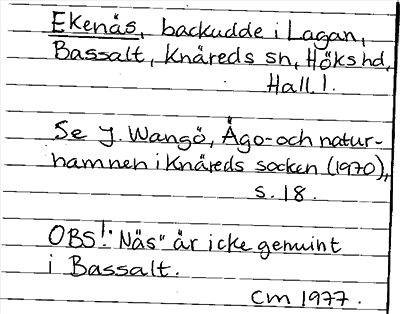 Ekenäs, backudde i Lagan,
Bassalt, Knäreds sn, Höks hd,
Hall.!
Se J. Wangö, Ägo- och natur-
namnen i Knäreds socken (1970),
s. 18.
OBS! "Näs" är icke genuint
i Bassalt.
CM 1977.